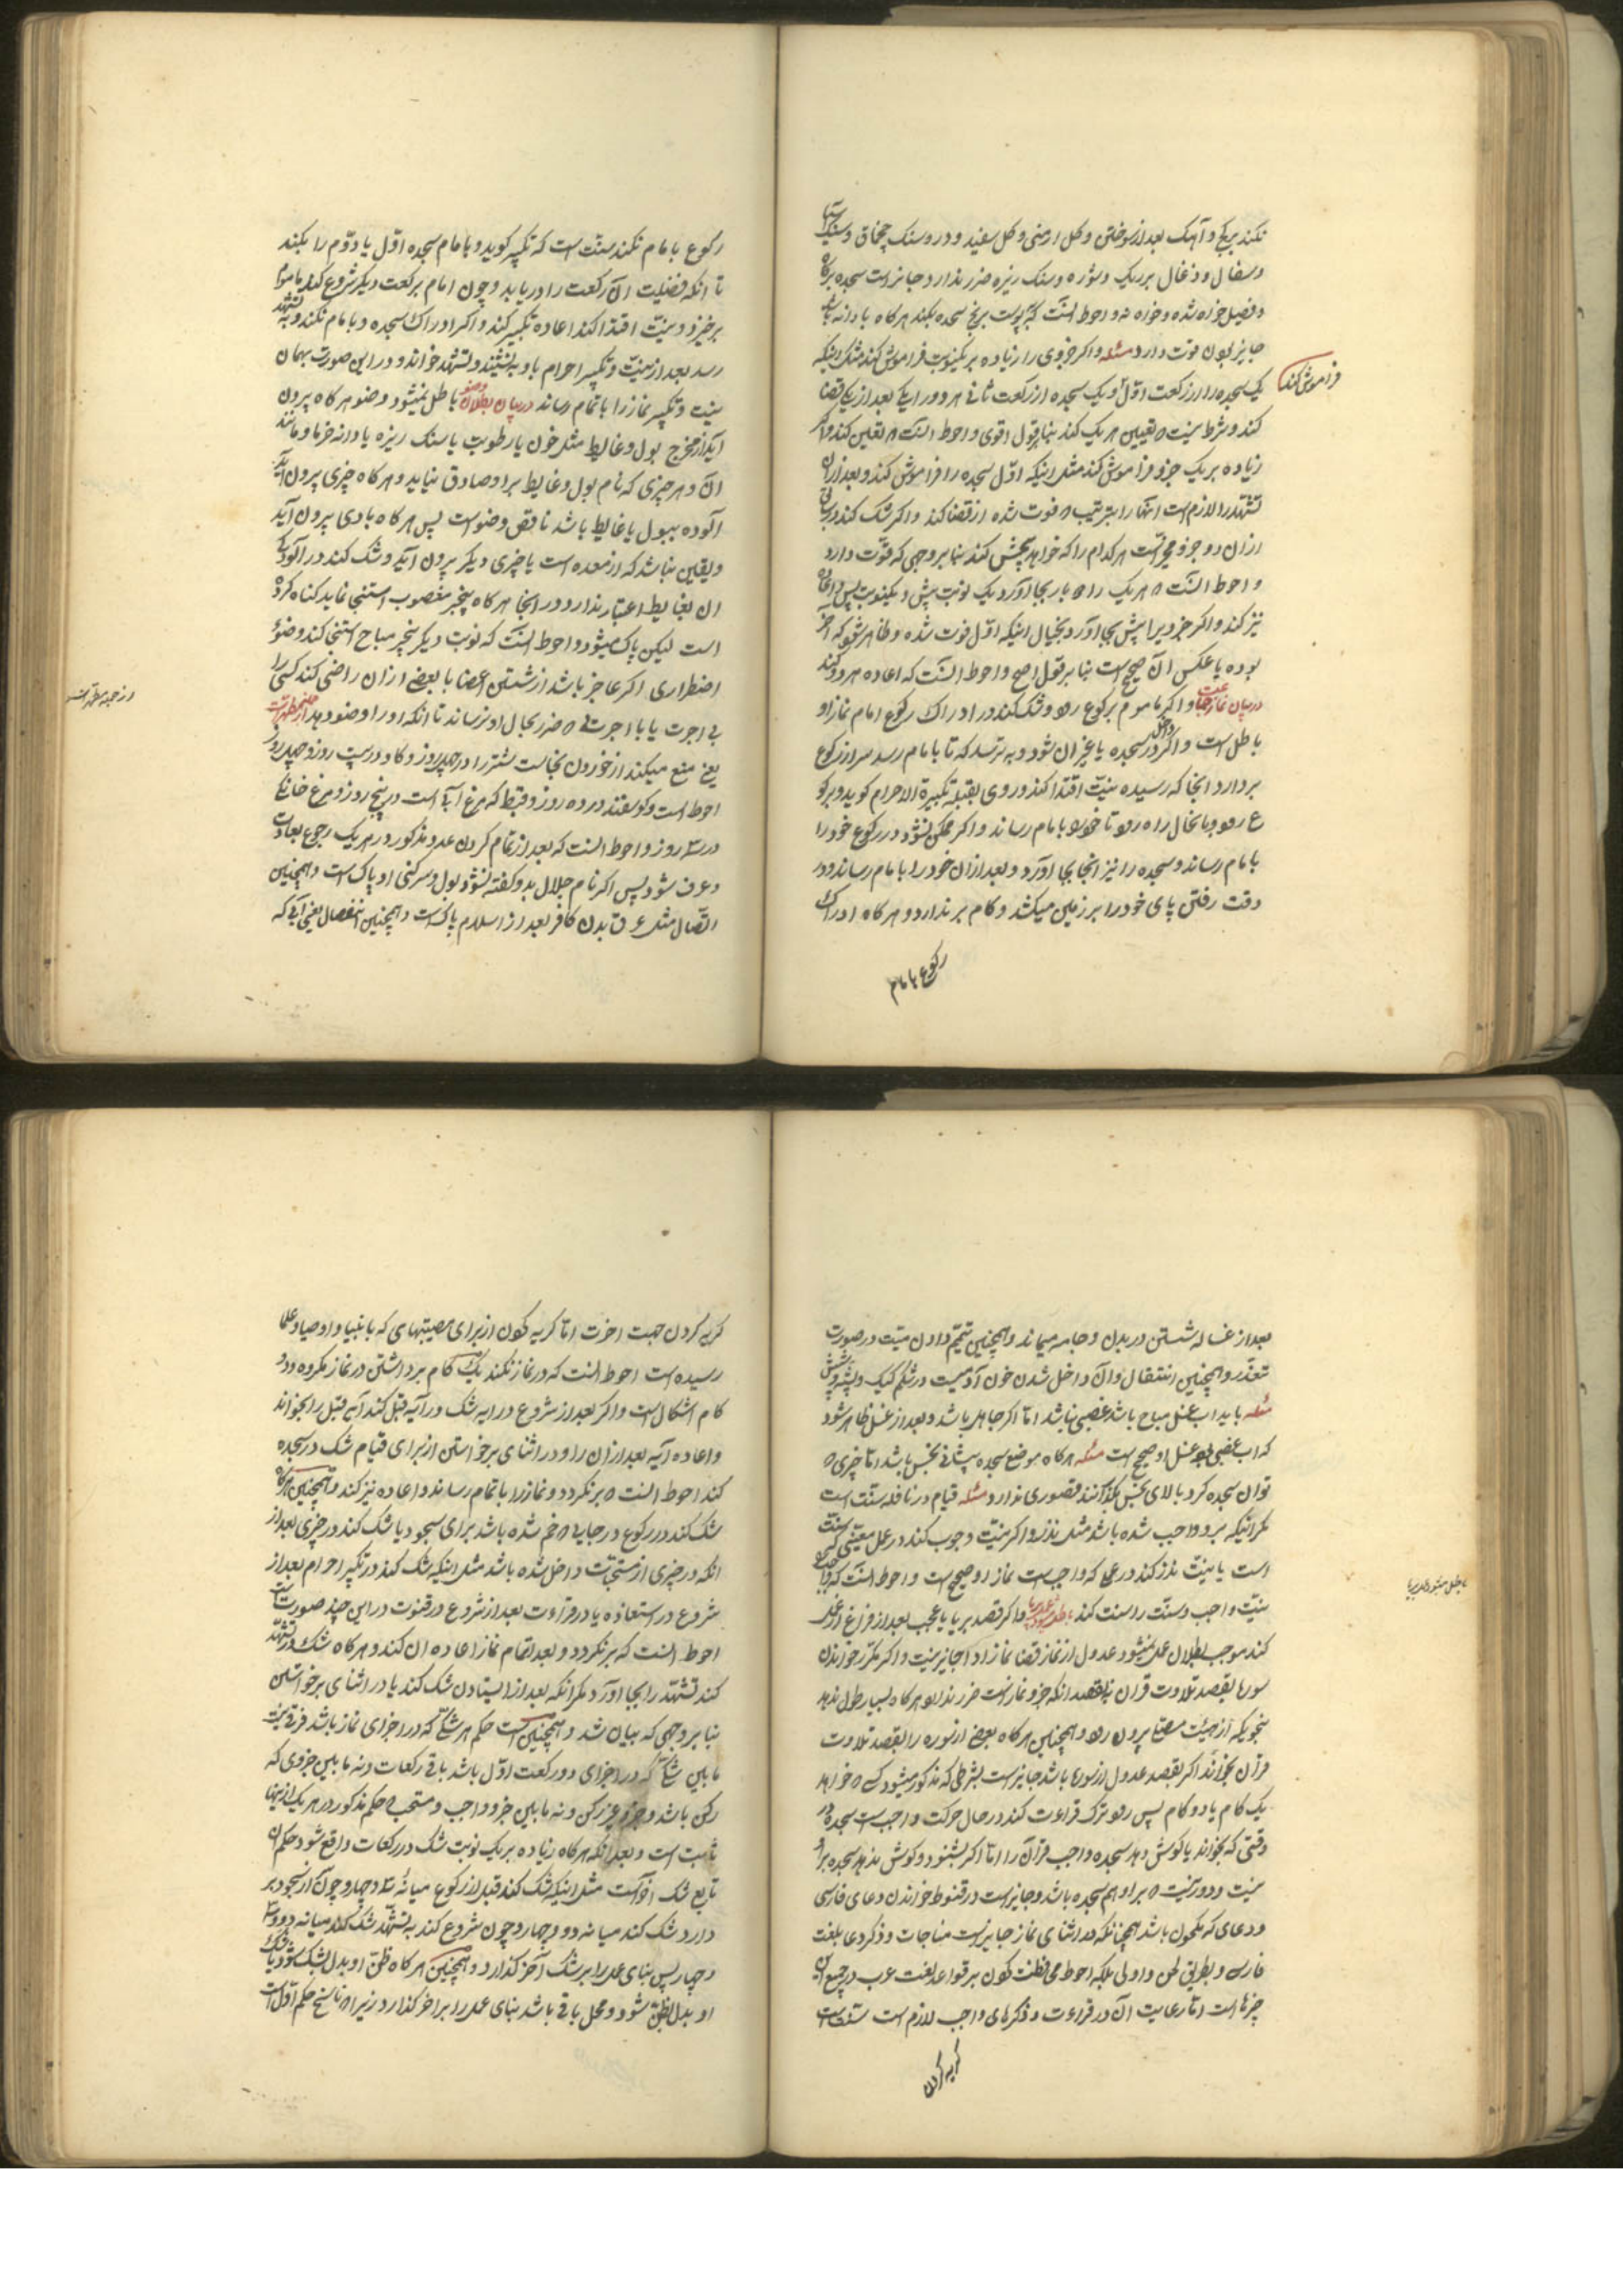 نکند بر گچ و آهک بعد از سوختن و گل ارمنی و گل سفید و در و سنک چخماق و سنک
و سفال و ذغال بر ریک و شوره و سنک ریزه ضرر ندارد و جایز است سجده بر کاه
جایز بودن قوت دارد مسئله و اگر جزوی را زیاده بر یک نوبت فراموش کند مثل اینکه
یک سجده را از رکعت اول و یک سجده از رکعت ثانی هر دو را یکی بعد از یکی قضا
فراموش کند
کند و شرط نیت تعیین هر یک کند بنا بر قول اقوی و احوط
زیاده بر یک جزو فراموش کند مثل اینکه اول سجده را فراموش کند و بعد از ان
تشهد را لازم است انها را بترتیب فوت شده از قضا کند و اکر شک کند
از ان دو جزو مخیر است هر کدام را که خواهد پیش کند بنا بر وجهی که قوت دارد
نیز کند و اکر جزویرا پیش بجا آورد بخیال اینکه اول فوت شده و ظاهر شود که آخر
بوده یا عکس آن صحیح است بنا بر قول اصح و احوط آنست که اعاده هر دو کند
در بیان نماز جماعت و اکر ماموم برکوع رود و شک کند در ادراک رکوع امام نماز او
باطل است و اکر در سجده یا غیر ان شود و به ترسد که تا بامام رسد سر از رکوع
بردارد انجا که رسیده نیت اقتدا کند و روی بقبله تکبیرة الاحرام کوید و برکو
ع رود و با نحال راه رود تا خود را بامام رساند و اکر ممکن نشود در رکوع خود را
بامام رساند و سجده را نیز انجا بجا آورد و بعد از ان خود را بامام رساند و در
وقت رفتن پای خود را بر زمین میکشد و کام بر ندارد و هر کاه ادراک
رکوع بامام
رکوع بامام نکند سنت است که تکبیر کوید و بامام سجده اول یا دوم را بکند
تا انکه فضیلت ان رکعت را دریابد و چون امام برکعت دیکر شروع کند ماموم
برخیزد و نیت اقتدا کند اعاده تکبیر کند و اکر ادراک سجده و بامام نکند و به تشهد
رسد بعد از نیت و تکبیر احرام باو به نشیند و تشهد خواند و در این صورت بهمان
نیت و تکبیر نماز را باتمام رساند در بیان بطلان وضو باطل نمیشود وضو هر کاه بیرون
آید از مخرج بول و غایط مثل خون یا رطوبت یا سنک ریزه یا دانه خرما و مانند
آن و هر چیزی که نام بول و غایط بر او صادق نیاید و هر کاه چیزی بیرون آید
آلوده ببول یا غایط باشد ناقض وضو است پس هر کاه بادی بیرون آید
و یقین نباشد که از معده است یا چیزی دیکر بیرون آید و شک کند در آلودکی
ان بغایط اعتبار ندارد و در انجا هر کاه بچیز مغصوب استنجا نماید کناه کرده
است لیکن پاک میشود و احوط آنست که نوبت دیکر بچیز مباح استنجا کند وضوء
اضطراری اکر عاجز باشد از شستن اعضا یا بعضی از ان راضی کند کسی را
بی اجرت یا با اجرتی ضرر بحال او نرساند تا انکه او را وضو دهد
یعنی منع میکند از خوردن نجاست شتر را در چهل روز و کاو در بیست روز و چهل روز
احوط است و کوسفند در ده روز و بط که مرغ آبی است در پنج روز و مرغ خانکی
در سه روز و احوط آنست که بعد از تمام کردن عدد مذکور در هر یک رجوع بعادت
و عرف شود پس اکر نام جلال بدو کفته نشود بول و سرکین او پاکست و همچنین
اتصال مثل عرق بدن کافر بعد از اسلام پاکست و همچنین انفصال یعنی آبی که
بعد از غساله شستن در بدن و جامه میماند و همچنین تیمم دادن میت در صورت
تعذر و همچنین انتقال و آن داخل شدن خون آدمیست در شکم کیک و پشه و شپش
مسئله باید اب غسل مباح باشد غصبی نباشد اما اکر جاهل باشد و بعد از غسل ظاهر شود
که اب غصبی بود غسل او صحیح است مسئله هر کاه موضع سجده پیشانی نجس باشد اما چیزی
توان سجده کرد بالای نجس بکذارند قصوری ندارد مسئله قیام در نافله سنت است
مکر اینکه بر او واجب شده باشد مثل نذر و اکر نیت وجوب کند در عمل معینی
است یا نیت نذر کند در عملی که واجب است نماز او صحیح است و احوط آنست که
نیت واجب و سنت را سنت کند و اکر قصد بریا یا عجب بعد از فراغ از عمل
باطل میشود عمل بریا
کند موجب بطلان عمل نمیشود عدول از نماز قضا بنماز ادا جایز نیست و اکر مکرر خواندن
سوره بقصد تلاوت قران نه بقصد انکه جزو نماز است ضرر ندارد و هر کاه بسیار طول ندهد
بنحویکه از هیئت مصلی بیرون رود و همچنین هر کاه بعضی از سوره را بقصد تلاوت
قران بخواند اکر بقصد عدول از سوره باشد جایز است بشرطی که مذکور میشود کسی خواهد
یک کام یا دو کام پس رود ترک قراءت کند در حال حرکت واجب است سجده در
وقتی که بخواند یا کوش دهد سجده واجب قران را اما اکر بشنود و کوش ندهد سجده بر او
نیست و دور نیست بر او هم سجده باشد و جایز است در قنوط خواندن دعای فارسی
و دعای که ملحون باشد همچنانکه در اثنای نماز جایز است مناجات و ذکر و دعا بلغت
فارسی و بطریق لحن و اولی بلکه احوط محافظت نمودن بر قواعد لغت عرب در جمیع این
چیزها است اما رعایت آن در قراءت و ذکرهای واجب لازم است سنت است
کریه کردن
کریه کردن جهت اخرت اما کریه کردن از برای مصیبتهای که بانبیا و اوصیا و علما
رسیده است احوط آنست که در نماز نکند یک کام برداشتن در نماز مکروه و در دو
کام اشکال است و اکر بعد از شروع در ایه شک در آیه قبل کند آیه قبل را بخواند
و اعاده آیه بعد از ان را و در اثنای برخواستن از برای قیام شک در سجده
کند احوط آنست بر نکردد و نماز را باتمام رساند و اعاده نیز کند و همچنین هر کاه
شک کند در رکوع در جایی خم شده باشد برای سجود یا شک کند در چیزی بعد از
انکه در چیزی از مستحبات داخل شده باشد مثل اینکه شک کند در تکبیر احرام بعد از
شروع در استعاذه یا در قراءت بعد از شروع در قنوت در این چند صورت
احوط آنست که بر نکردد و بعد اتمام نماز اعاده ان کند و هر کاه شک در تشهد
کند تشهد را بجا آورد مکر انکه بعد از ایستادن شک کند یا در اثنای برخواستن
بنا بر وجهی که بیان شد و همچنین است حکم هر شکی که در اجزای نماز باشد فرقی نیست
مابین شکی که در اجزای دو رکعت اول باشد باقی رکعات و نه مابین جزوی که
رکن باشد و جزو غیر رکن و نه مابین جزو واجب و مستحب حکم مذکور در هر یک از اینها
ثابت است و بعد انکه هر کاه زیاده بر یک نوبت شک در رکعات واقع شود حکم ان
تابع شک آخر است مثل اینکه شک کند قبل از رکوع میانه سه و چهار و چون از سجود بر
دارد شک کند میانه دو و چهار و چون شروع کند به تشهد شک کند میانه دو و سه
و چهار پس بنای عمل را بر شک آخر کذارد و همچنین هر کاه ظن او بدل بشک شود یا شک
او بدل بظن شود و محل باقی باشد بنای عمل را بر اخر کذارد زیرا ناسخ حکم اول است